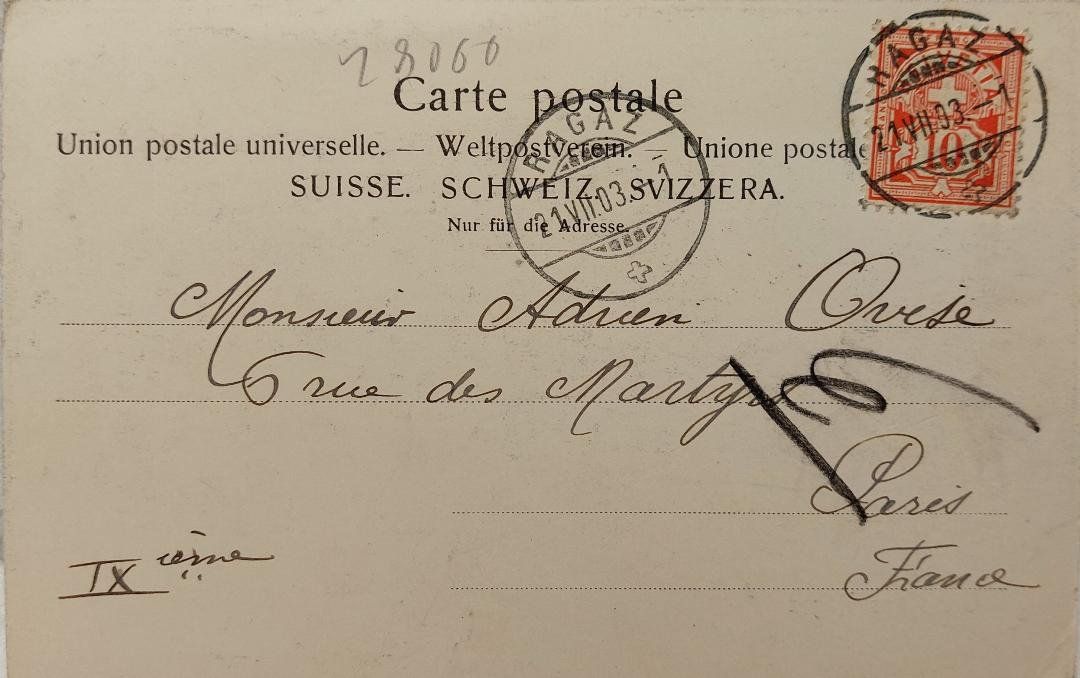 28060
Carte postale
Union postale universelle. — Weltpostverein. — Unione postale
SUISSE. SCHWEIZ. SVIZZERA.
Nur für die Adresse.
RAGAZ
21.VII.03.-1
RAGAZ
21.VII.03.-1
10
Monsieur Adrien
rue des Martyrs
Paris
IX ième
France